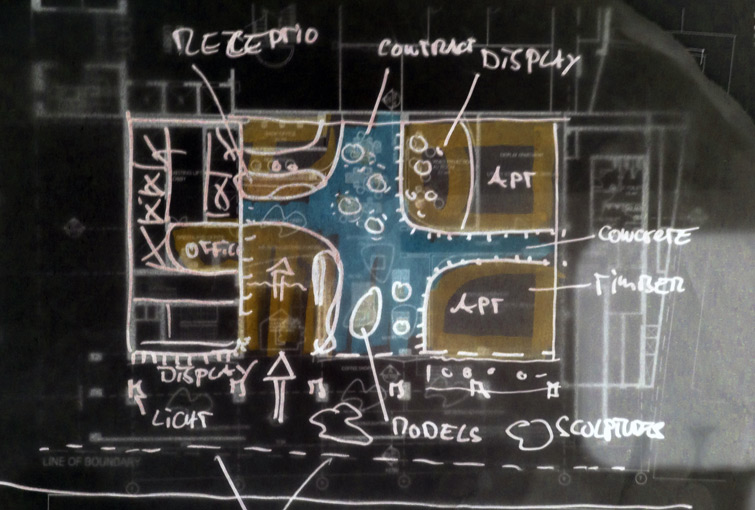 RECEPTIO
CONTRACT
DISPLAY
APT
OFFICE
CONCRETE
TIMBER
APT
DISPLAY
LIGHT
MODELS
SCULPTURES
LINE OF BOUNDARY